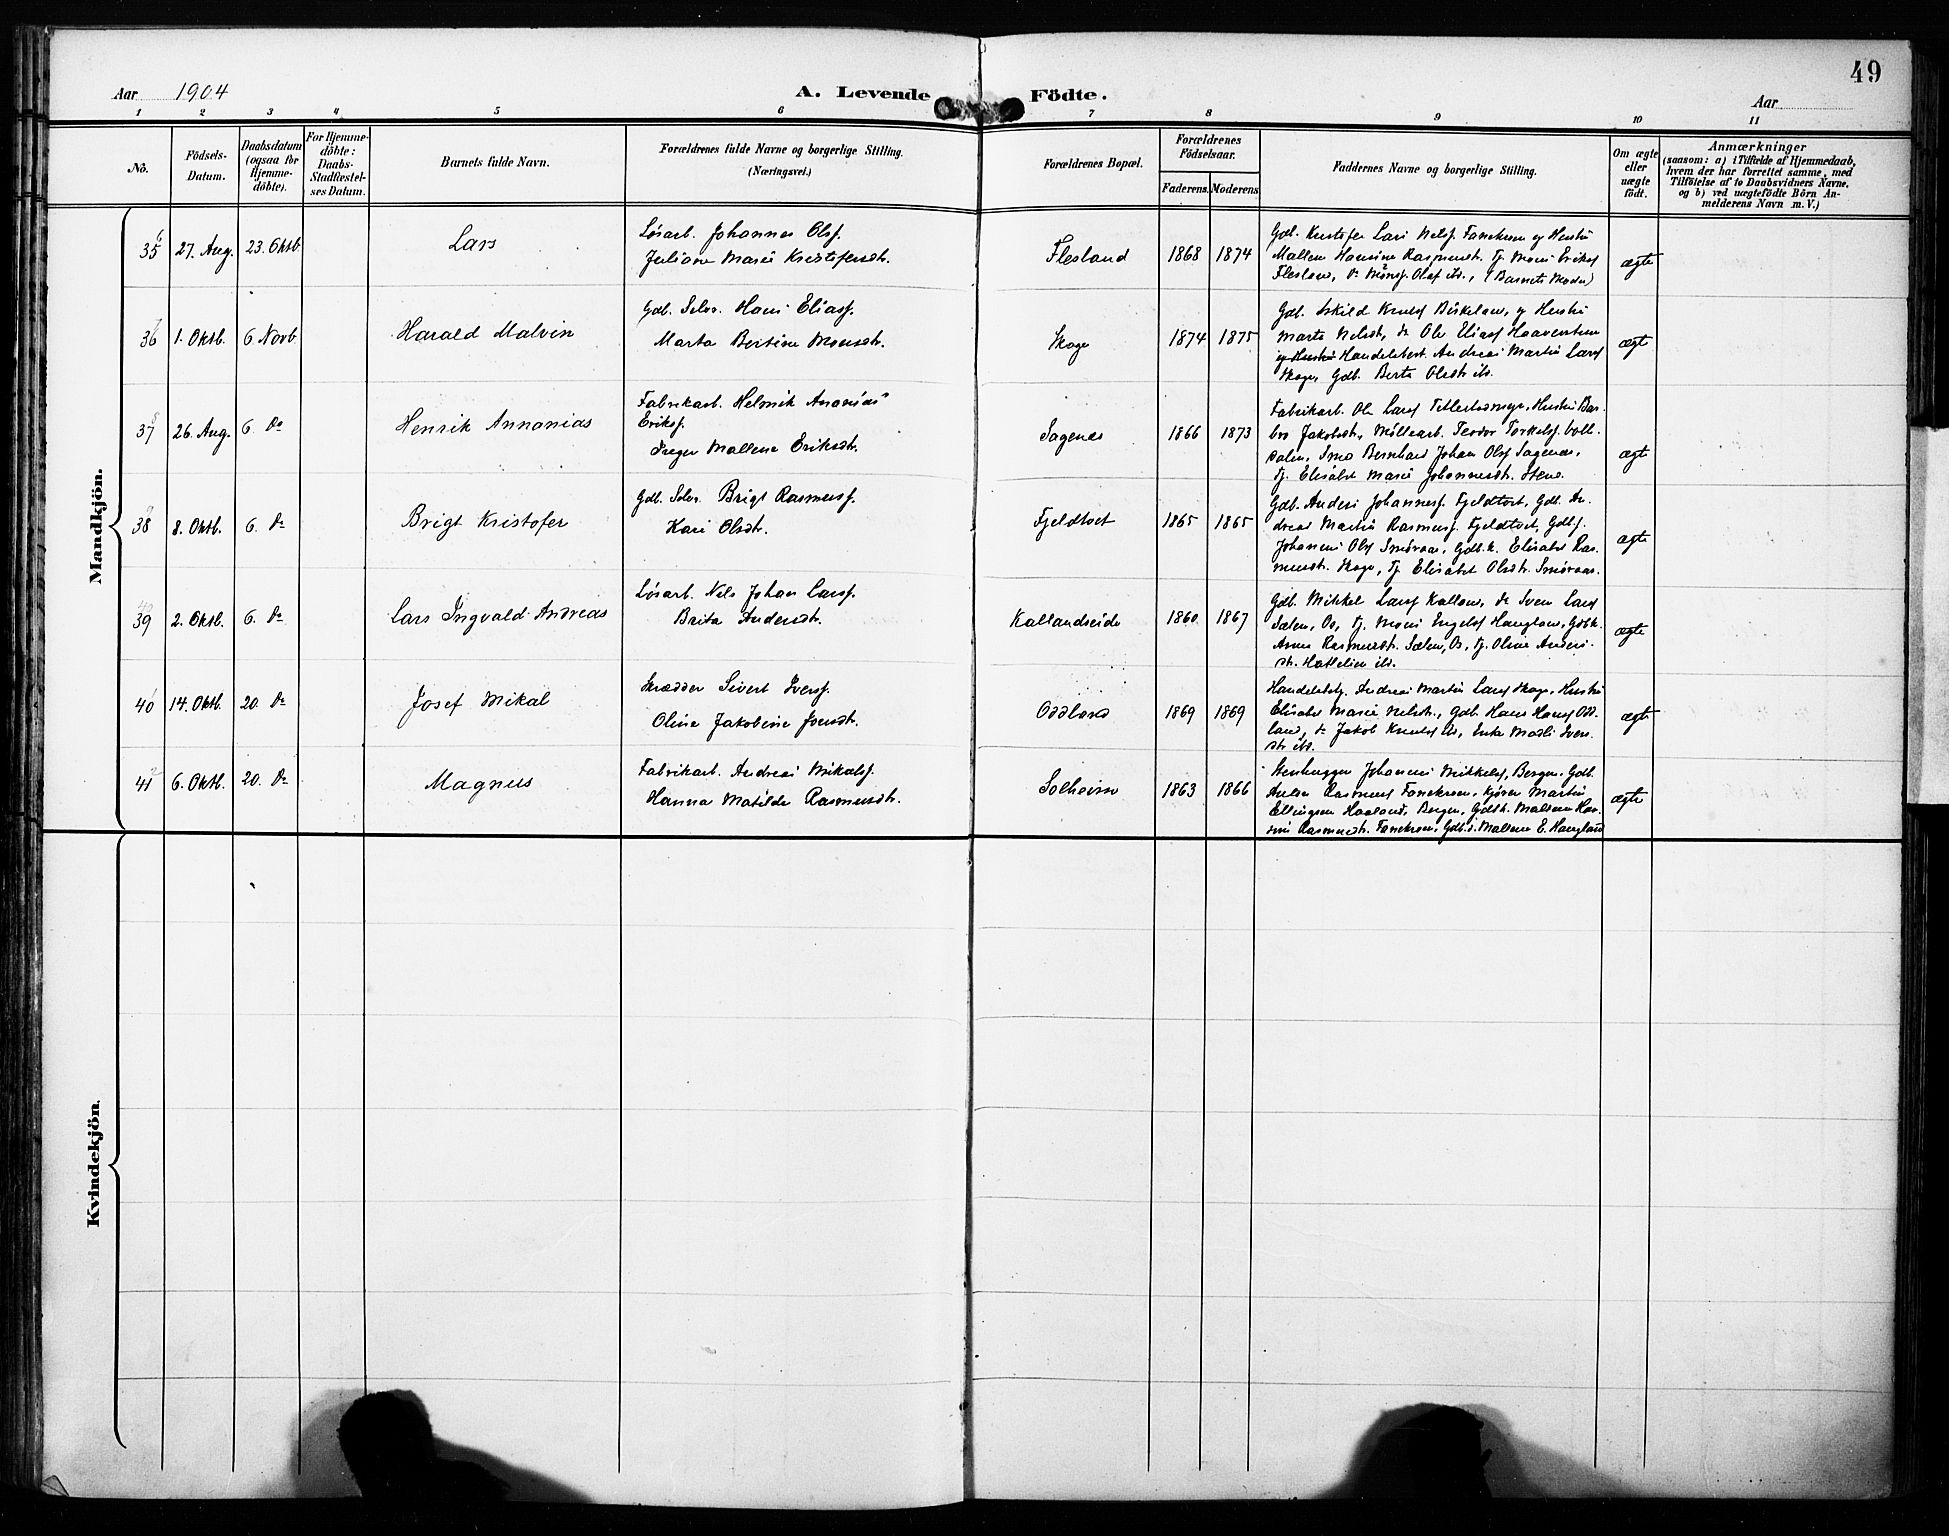 49
Aar 1904
A. Levende Födte.
Aar
1 2 3 4 5 6 7 8 9 10 11
No.
Födsels-Datum.
Daabsdatum (ogsaa for Hjemme-döbte).
For Hjemme-döbte: Daabs-Stadfæstel-ses Datum.
Barnets fulde Navn.
Forældrenes fulde Navne og borgerlige Stilling. (Næringsvei.)
Forældrenes Bopæl.
Forældrenes Födselsaar.
Faderens. Moderens
Faddernes Navne og borgerlige Stilling.
Om ægte eller uægte födt.
Anmærkninger
(saasom: a) i Tilfælde af Hjemmedaab,
hvem der har forrettet samme, med
Tilföielse af to Daabsvidners Navne,
og b) ved uægtefödte Börn An-
melderens Navn m. V.)
Mandkjön.
35 27. Aug. 23. Oktb Lars
Løsarb. Johannes Olsf.
Juliane Marie Kristofersdt.
Flesland 1868 1874
Gdb. Kristofer Lars Nelsf. Fanekron og Hustru
Malene Hansine Rasmusdt. Tj. Mons Eriksf
Flesland, Do Mons Olsf ibd., (Barnets Moder)
ægte
36 1. Oktb. 6 Novb. Harald Malvin
Gdb. Selv. Hans Eliasf.
Marta Bertine Monsdt.
Skage 1874 1875
Gdb. Eskild Knutsf Birkeland, og Hustru
Marta Nelsdt, do Ole Eliasf
og Hustru Handelsbet. Andreas Martin Larsf
Skage, Gdb. Berta Olsdt ibd.
ægte
37 26. Aug. 6. Do Henrik Annanias
Fabrikarb. Helmik Ananias
Eriksf.
Inger Mallene Eriksdt.
Sagenes 1866 1873
Fabrikarb. Ole Larsf Hustru Bar-
bro Jakobsdt., Møllearb. Teodor Torkelsf.
dalen, Bernhard Johan Olsf Sagenes,
Tj. Elisabet Marie Johannesdt. Stene.
ægte
38 8. Oktb. 6. Do Brigt Kristofer
Gdb. Selv. Brigt Rasmusf.
Kari Olsdt.
Fjeldtvet 1865 1865
Gdb. Anders Johannesf. Fjeldtvet, Gdb. An-
dreas Martin Rasmusf. Fjeldtvet, Gdbsf.
Johannes Olsf Smøraas, Gdb.k. Elisabet Ras-
musdt. Skage, Tj. Elisabet Olsdt. Smøraas.
ægte
39 2. Oktb. 6. Do Lars Ingvald Andreas
Løsarb. Nels Johan Larsf.
Brita Andersdt.
Kallandseide 1860 1867
Gdb. Mikkel Larsf Kalland, do Sven Larsf
Sælen, Os, Tj. Mons Engelsf Haugland, Gdbk.
Anna Rasmusdt. Sælen, Os, Tj. Oline Anders-
dt. Hatlelien ibd.
ægte
40 14. Oktb. 20. Do Josef Mikal
Skrædder Sivert Iversf.
Oline Jakobine Jonsdt.
Oddland 1869 1869
Handelsbetj. Andreas Martin Larsf Skage, Hustru
Elisabet Marie Nelsdt., Gdb. Hans Hansf Odd-
land, do Jakob Knutsf ibd, Enke Madli Ivers-
dt ibd.
ægte
41 6. Oktb. 20. Do Magnus
Fabrikarb. Andreas Mikalsf.
Hanna Matilde Rasmusdt.
Solheim 1863 1866
Stenhugger Johannes Mikkelsf, Bergen, Gdb.
Rasmusf Fanekron, Martin
Ellingsen Haaland, Bergen, Malene Han-
sine Rasmusdt. Fanekron, Gdb.d. Malene E. Haugland
ægte
Kvindekjön.